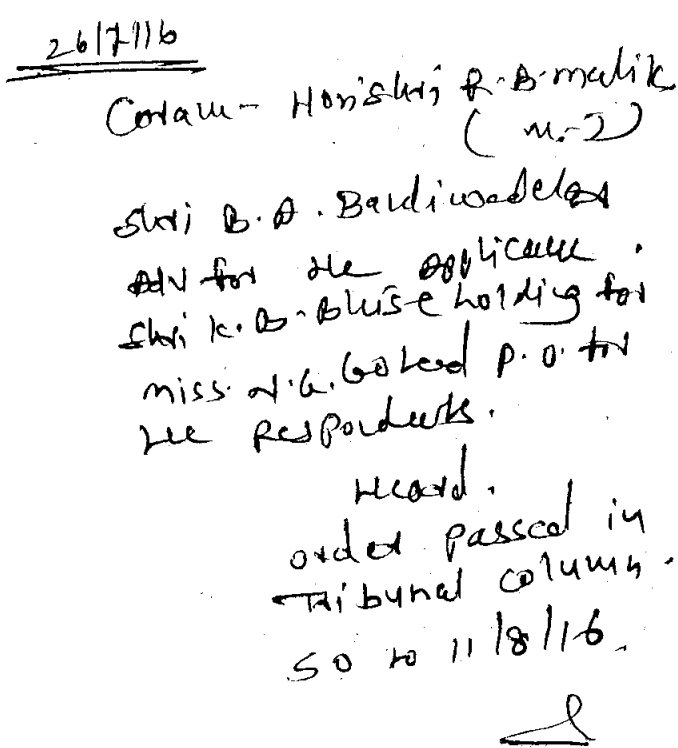 26/7/16
Coram - Hon'shri R.B. malik
( M.-J )
Shri B.A. Bandiwadekar
Adv for the applicant.
Shri K.B. Bhise holding for
miss. N.G. Gohad P.O. for
the Respondents.
Heard.
order passed in
Tribunal column.
SO to 11/8/16.